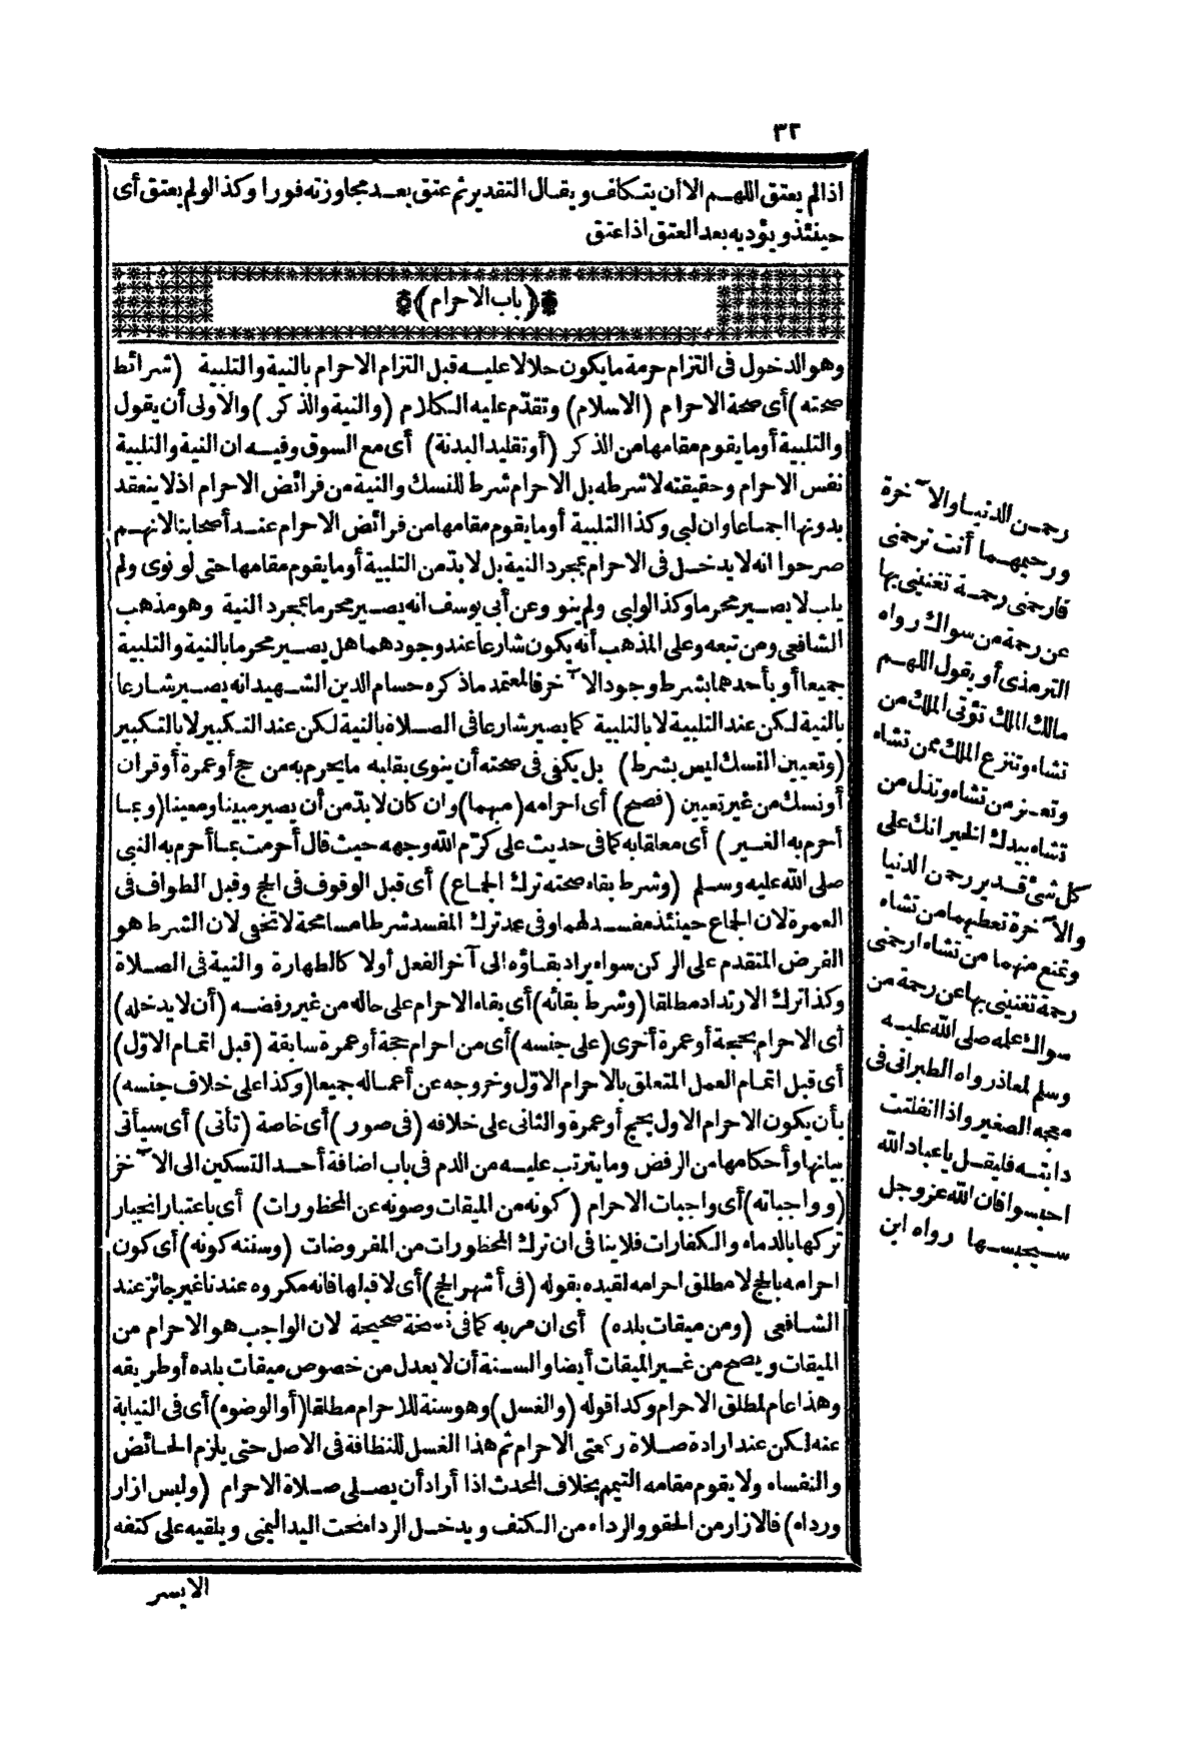 ٣٢
اذالم يعتق اللهم الا أن يتكلف ويقال التقدير ثم عتق بعد مجاوزته فورا وكذا لو لم يعتق أى
حينئذ ويؤديه بعد العتق اذا عتق
(باب الاحرام)
وهو الدخول فى التزام حرمة ما يكون حلالا عليه قبل التزام الاحرام بالنية والتلبية (شرائط
صحته) أى صحة الاحرام (الاسلام) وتقدّم عليه الكلام (والنية والذكر) والاولى أن يقول
والتلبية أو ما يقوم مقامها من الذكر (أو تقليد البدنة) أى مع السوق وفيه ان النية والتلبية
نفس الاحرام وحقيقته لا شرطه بل الاحرام شرط للنسك والنية من فرائض الاحرام اذ لا ينعقد
بدونها اجماعا وان لبى وكذا التلبية أو ما يقوم مقامها من فرائض الاحرام عند أصحابنا لانهم
صرحوا انه لا يدخل فى الاحرام بمجرد النية بل لا بدّ من التلبية أو ما يقوم مقامها حتى لو نوى ولم
يلب لا يصير محرما وكذا لو لبى ولم ينو وعن أبى يوسف انه يصير محرما بمجرد النية وهو مذهب
الشافعى ومن تبعه وعلى المذهب أنه يكون شارعا عند وجودهما هل يصير محرما بالنية والتلبية
جميعا أو بأحدهما بشرط وجود الآخر فالمعتمد ما ذكره حسام الدين الشهيد انه يصير شارعا
بالنية لكن عند التلبية لا بالتلبية كما يصير شارعا فى الصلاة بالنية لكن عند التكبير لا بالتكبير
(وتعيين النسك ليس بشرط) بل يكفى فى صحته أن ينوى بقلبه ما يحرم به من حج أو عمرة أو قران
أو نسك من غير تعيين (فصح) أى احرامه (مبهما) وان كان لا بدّ من أن يصير مبينا ومعينا (وبما
أحرم به الغير) أى معلقا به كما فى حديث على كرّم الله وجهه حيث قال أحرمت بما أحرم به النبى
صلى الله عليه وسلم (وشرط بقاء صحته ترك الجماع) أى قبل الوقوف فى الحج وقبل الطواف فى
العمرة لان الجماع حينئذ مفسد لهما وفى عد ترك المفسد شرطا مسامحة لا تخفى لان الشرط هو
الفرض المتقدم على الركن سواء يراد بقاؤه الى آخر الفعل أولا كالطهارة والنية فى الصلاة
وكذا ترك الارتداد مطلقا (وشرط بقائه) أى بقاء الاحرام على حاله من غير رفضه (أن لا يدخله)
أى الاحرام بحجة أو عمرة أخرى (على جنسه) أى من احرام حجة أو عمرة سابقة (قبل اتمام الاوّل)
أى قبل اتمام العمل المتعلق بالاحرام الاوّل وخروجه عن أعماله جميعا (وكذا على خلاف جنسه)
بأن يكون الاحرام الاول بحج أو عمرة والثانى على خلافه (فى صور) أى خاصة (تأتى) أى سيأتى
بيانها وأحكامها من الرفض وما يترتب عليه من الدم فى باب اضافة أحد النسكين الى الآخر
(وواجباته) أى واجبات الاحرام (كونه من الميقات وصونه عن المحظورات) أى باعتبار انجبار
تركها بالدماء والكفارات فلا ينافى ان ترك المحظورات من المفروضات (وسننه كونه) أى كون
احرامه بالحج لا مطلق احرامه لقيده بقوله (فى أشهر الحج) أى لا قبلها فانه مكروه عندنا غير جائز عند
الشافعى (ومن ميقات بلده) أى ان مر به كما فى نسخة صحيحة لان الواجب هو الاحرام من
الميقات ويصح من غير الميقات أيضا والسنة أن لا يعدل من خصوص ميقات بلده أو طريقه
وهذا عام لمطلق الاحرام وكذا قوله (والغسل) وهو سنة للاحرام مطلقا (أو الوضوء) أى فى النيابة
عنه لكن عند ارادة صلاة ركعتى الاحرام ثم هذا الغسل للنظافة فى الاصل حتى يلزم الحائض
والنفساء ولا يقوم مقامه التيمم بخلاف المحدث اذا أراد أن يصلى صلاة الاحرام (ولبس ازار
ورداء) فالازار من الحقو والرداء من الكتف ويدخل الرداء تحت اليد اليمنى ويلقيه على كتفه
الايسر
رحمن الدنيا والآخرة
ورحيمهما أنت ترحمنى
فارحمنى رحمة تغنينى بها
عن رحمة من سواك رواه
الترمذى أو يقول اللهم
مالك الملك تؤتى الملك من
تشاء وتنزع الملك ممن تشاء
وتعز من تشاء وتذل من
تشاء بيدك الخير انك على
كل شئ قدير رحمن الدنيا
والآخرة تعطيهما من تشاء
وتمنع منهما من تشاء ارحمنى
رحمة تغنينى بها عن رحمة من
سواك علمه صلى الله عليه
وسلم لمعاذ رواه الطبرانى فى
معجمه الصغير واذا انفلتت
دابته فليقل يا عباد الله
احبسوا فان الله عز وجل
سيحبسها رواه ابن